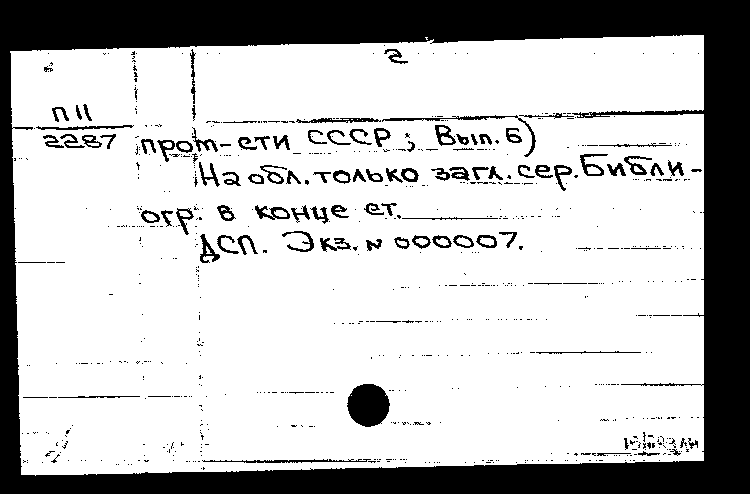 2
П 11
2287 пром-сти СССР; Вып. 6)
На обл. только загл. сер. Библи-
огр. в конце ст.
ДСП. Экз. № 000007.